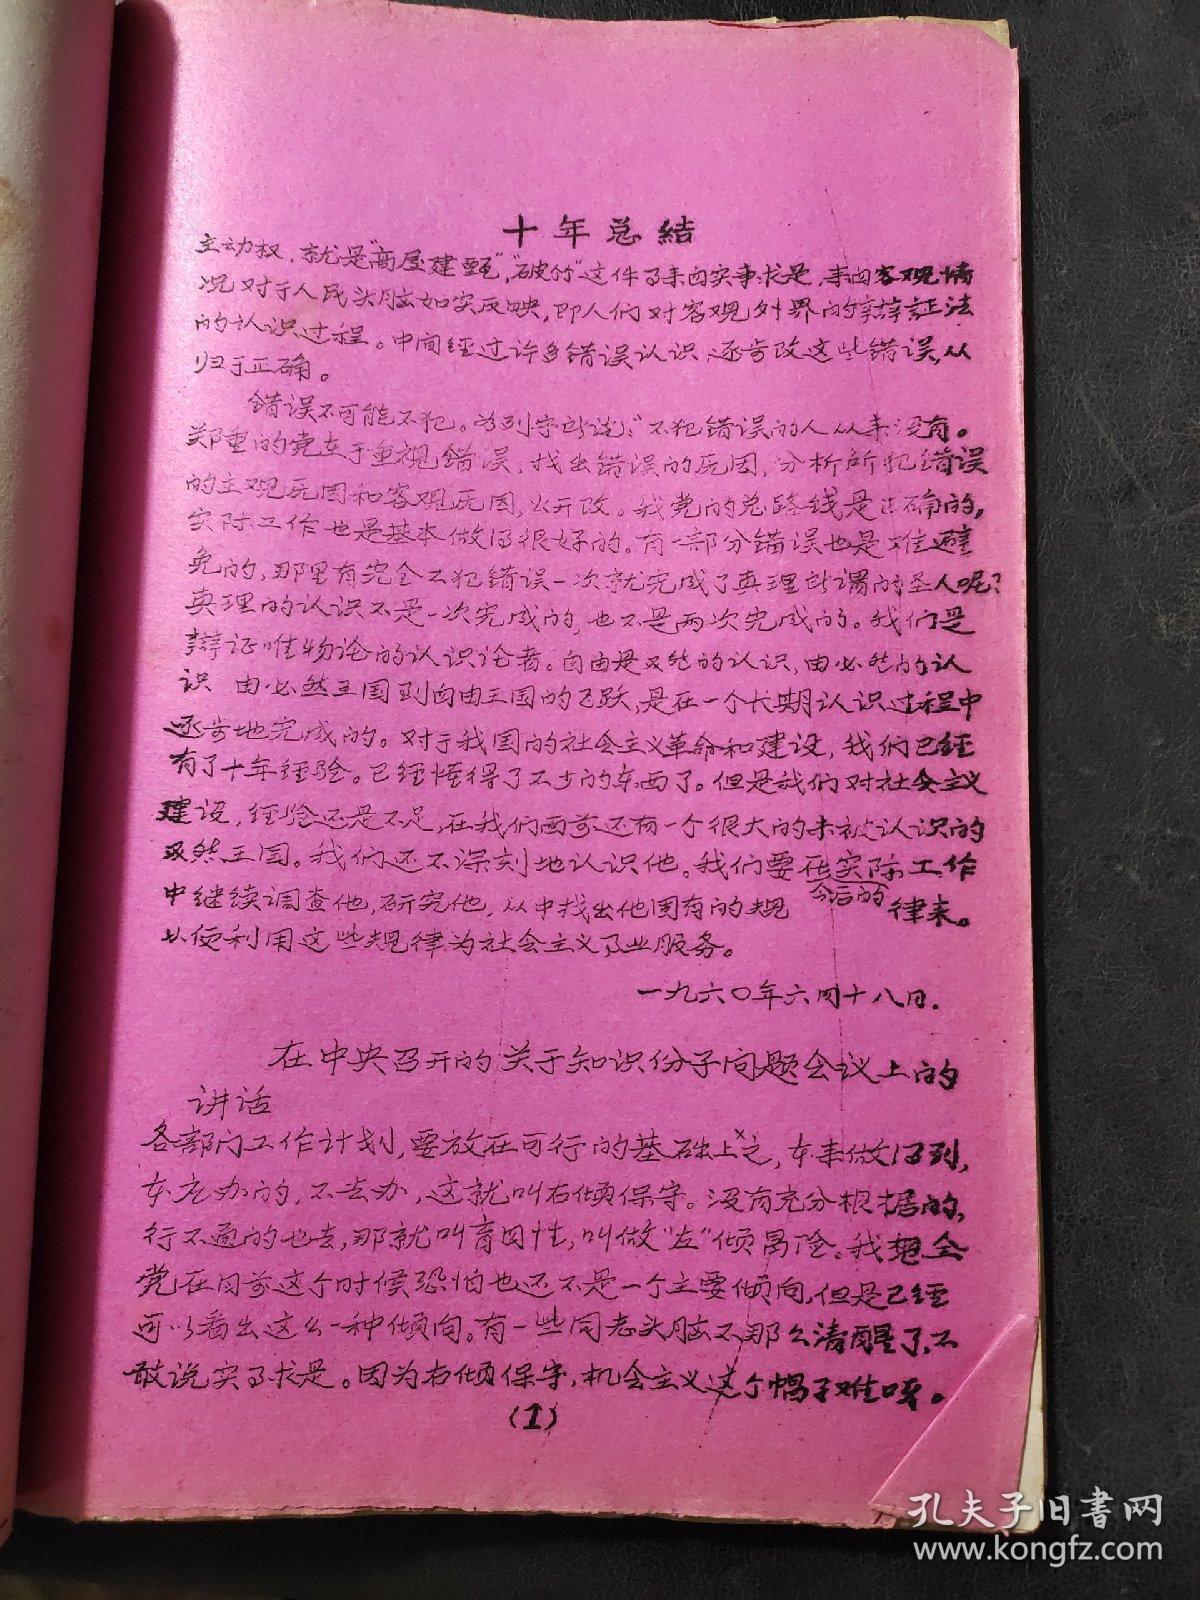 十年总结
主动权，就是“高屋建瓴”，“破竹”这件事来自实事求是，来自客观情
况对于人民头脑如实反映，即人们对客观外界的辩証法
的认识过程。中间经过许多错误认识逐步改这些错误，从
归于正确。
错误不可能不犯。如列宁所说：“不犯错误的人从来没有。
郑重的党在于重视错误，找出错误的原因，分析所犯错误
的主观原因和客观原因，公开改。我党的总路线是正确的，
实际工作也是基本做得很好的。有一部分错误也是难避
免的，那里有完全不犯错误一次就完成了真理所谓的圣人呢？
真理的认识不是一次完成的，也不是两次完成的。我们是
辩证唯物论的认识论者。自由是必然的认识，由必然的认
识 由必然王国到自由王国的飞跃，是在一个长期认识过程中
逐步地完成的。对于我国的社会主义革命和建设，我们已经
有了十年经验。已经懂得了不少的东西了。但是我们对社会主义
建设，经验还是不足，在我们面前还有一个很大的未被认识的
必然王国。我们还不深刻地认识他。我们要在实际工作
今后的
中继续调查他，研究他，从中找出他固有的规律来。
以便利用这些规律为社会主义事业服务。
一九六〇年六月十八日.
在中央召开的关于知识份子问题会议上的
讲话
各部门工作计划，要放在可行的基础上之，本来做得到，
本应办的，不去办，这就叫右倾保守。没有充分根据的，
行不通的也去，那就叫盲目性，叫做“左”倾冒险。我想全
党在目前这个时候恐怕也还不是一个主要倾向，但是已经
可以看出这么一种倾向。有一些同志头脑不那么清醒了，不
敢说实事求是。因为右倾保守，机会主义这个帽子难听。
(1)
孔夫子旧书网
www.kongfz.com